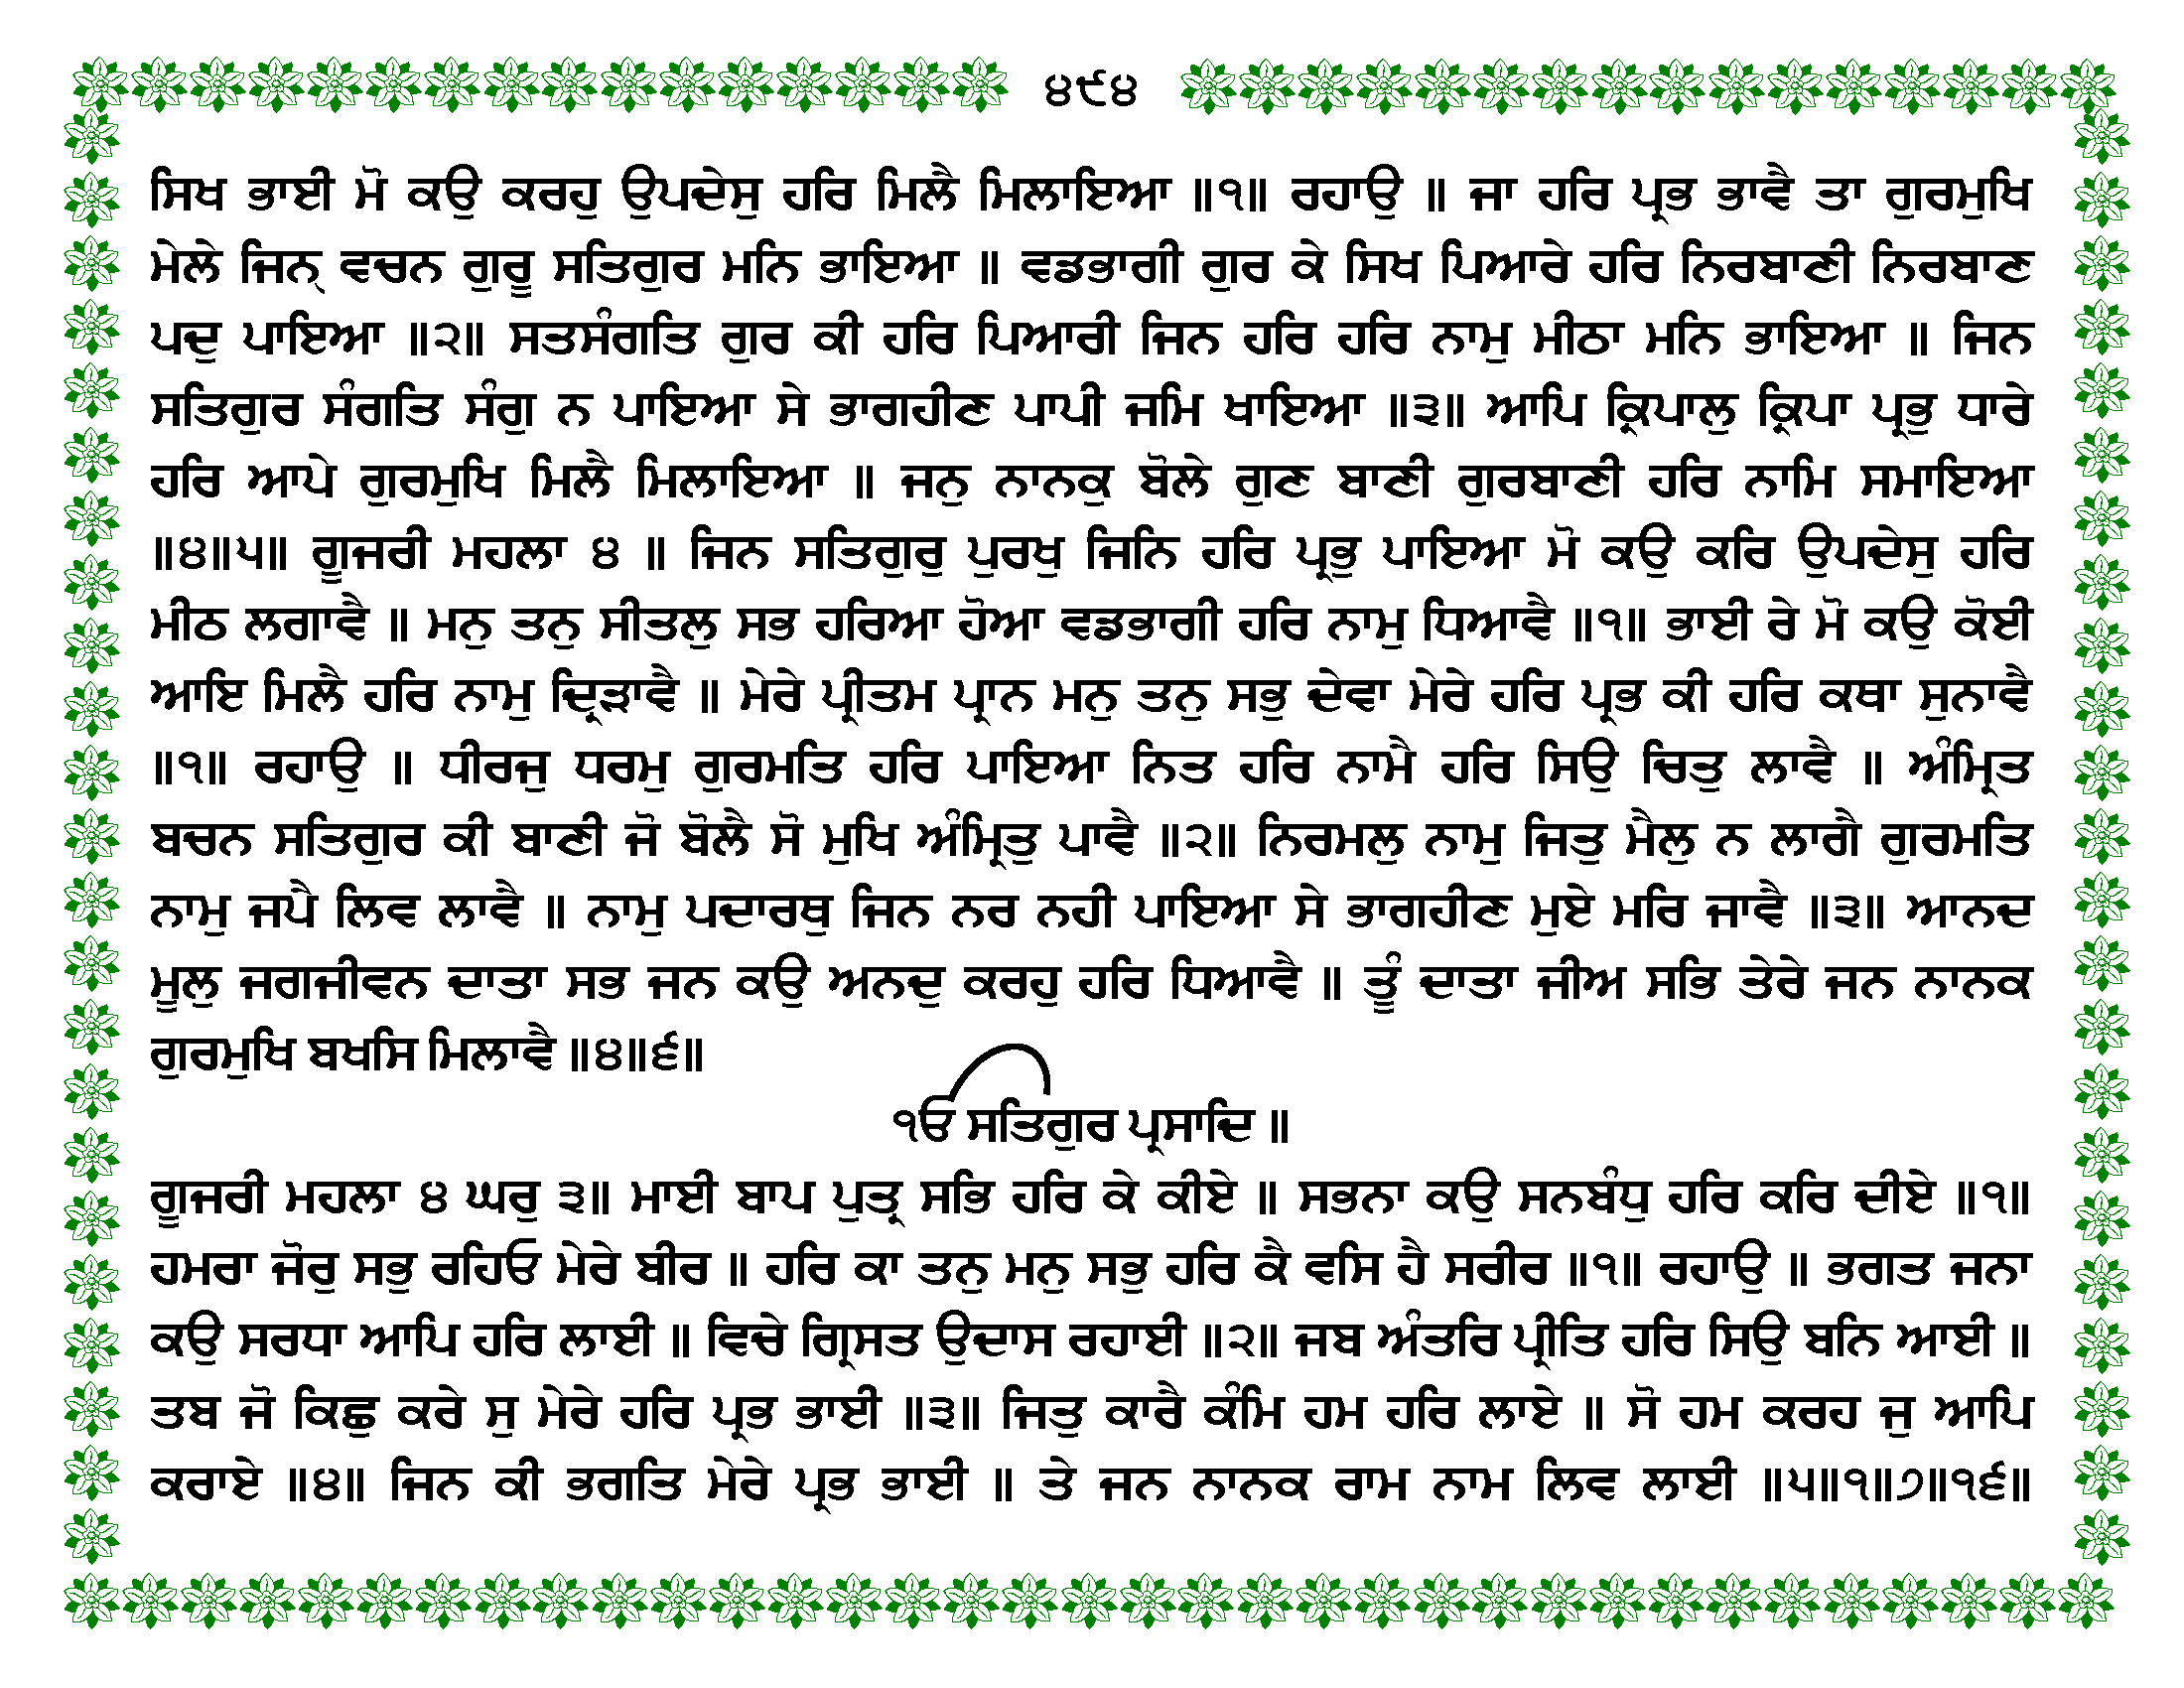 ੪੯੪
ਸਿਖ ਭਾਈ ਮੋ ਕਉ ਕਰਹੁ ਉਪਦੇਸੁ ਹਰਿ ਮਿਲੈ ਮਿਲਾਇਆ ॥੧॥ ਰਹਾਉ ॥ ਜਾ ਹਰਿ ਪ੍ਰਭ ਭਾਵੈ ਤਾ ਗੁਰਮੁਖਿ
ਮੇਲੇ ਜਿਨ੍ ਵਚਨ ਗੁਰੂ ਸਤਿਗੁਰ ਮਨਿ ਭਾਇਆ ॥ ਵਡਭਾਗੀ ਗੁਰ ਕੇ ਸਿਖ ਪਿਆਰੇ ਹਰਿ ਨਿਰਬਾਣੀ ਨਿਰਬਾਣ
ਪਦੁ ਪਾਇਆ ॥੨॥ ਸਤਸੰਗਤਿ ਗੁਰ ਕੀ ਹਰਿ ਪਿਆਰੀ ਜਿਨ ਹਰਿ ਹਰਿ ਨਾਮੁ ਮੀਠਾ ਮਨਿ ਭਾਇਆ ॥ ਜਿਨ
ਸਤਿਗੁਰ ਸੰਗਤਿ ਸੰਗੁ ਨ ਪਾਇਆ ਸੇ ਭਾਗਹੀਣ ਪਾਪੀ ਜਮਿ ਖਾਇਆ ॥੩॥ ਆਪਿ ਕ੍ਰਿਪਾਲੁ ਕ੍ਰਿਪਾ ਪ੍ਰਭੁ ਧਾਰੇ
ਹਰਿ ਆਪੇ ਗੁਰਮੁਖਿ ਮਿਲੈ ਮਿਲਾਇਆ ॥ ਜਨੁ ਨਾਨਕੁ ਬੋਲੇ ਗੁਣ ਬਾਣੀ ਗੁਰਬਾਣੀ ਹਰਿ ਨਾਮਿ ਸਮਾਇਆ
॥੪॥੫॥ ਗੂਜਰੀ ਮਹਲਾ ੪ ॥ ਜਿਨ ਸਤਿਗੁਰੁ ਪੁਰਖੁ ਜਿਨਿ ਹਰਿ ਪ੍ਰਭੁ ਪਾਇਆ ਮੋ ਕਉ ਕਰਿ ਉਪਦੇਸੁ ਹਰਿ
ਮੀਠ ਲਗਾਵੈ ॥ ਮਨੁ ਤਨੁ ਸੀਤਲੁ ਸਭ ਹਰਿਆ ਹੋਆ ਵਡਭਾਗੀ ਹਰਿ ਨਾਮੁ ਧਿਆਵੈ ॥੧॥ ਭਾਈ ਰੇ ਮੋ ਕਉ ਕੋਈ
ਆਇ ਮਿਲੈ ਹਰਿ ਨਾਮੁ ਦ੍ਰਿੜਾਵੈ ॥ ਮੇਰੇ ਪ੍ਰੀਤਮ ਪ੍ਰਾਨ ਮਨੁ ਤਨੁ ਸਭੁ ਦੇਵਾ ਮੇਰੇ ਹਰਿ ਪ੍ਰਭ ਕੀ ਹਰਿ ਕਥਾ ਸੁਨਾਵੈ
॥੧॥ ਰਹਾਉ ॥ ਧੀਰਜੁ ਧਰਮੁ ਗੁਰਮਤਿ ਹਰਿ ਪਾਇਆ ਨਿਤ ਹਰਿ ਨਾਮੈ ਹਰਿ ਸਿਉ ਚਿਤੁ ਲਾਵੈ ॥ ਅੰਮ੍ਰਿਤ
ਬਚਨ ਸਤਿਗੁਰ ਕੀ ਬਾਣੀ ਜੋ ਬੋਲੈ ਸੋ ਮੁਖਿ ਅੰਮ੍ਰਿਤੁ ਪਾਵੈ ॥੨॥ ਨਿਰਮਲੁ ਨਾਮੁ ਜਿਤੁ ਮੈਲੁ ਨ ਲਾਗੈ ਗੁਰਮਤਿ
ਨਾਮੁ ਜਪੈ ਲਿਵ ਲਾਵੈ ॥ ਨਾਮੁ ਪਦਾਰਥੁ ਜਿਨ ਨਰ ਨਹੀ ਪਾਇਆ ਸੇ ਭਾਗਹੀਣ ਮੁਏ ਮਰਿ ਜਾਵੈ ॥੩॥ ਆਨਦ
ਮੂਲੁ ਜਗਜੀਵਨ ਦਾਤਾ ਸਭ ਜਨ ਕਉ ਅਨਦੁ ਕਰਹੁ ਹਰਿ ਧਿਆਵੈ ॥ ਤੂੰ ਦਾਤਾ ਜੀਅ ਸਭਿ ਤੇਰੇ ਜਨ ਨਾਨਕ
ਗੁਰਮੁਖਿ ਬਖਸਿ ਮਿਲਾਵੈ ॥੪॥੬॥
ੴ ਸਤਿਗੁਰ ਪ੍ਰਸਾਦਿ ॥
ਗੂਜਰੀ ਮਹਲਾ ੪ ਘਰੁ ੩॥ ਮਾਈ ਬਾਪ ਪੁਤ੍ਰ ਸਭਿ ਹਰਿ ਕੇ ਕੀਏ ॥ ਸਭਨਾ ਕਉ ਸਨਬੰਧੁ ਹਰਿ ਕਰਿ ਦੀਏ ॥੧॥
ਹਮਰਾ ਜੋਰੁ ਸਭੁ ਰਹਿਓ ਮੇਰੇ ਬੀਰ ॥ ਹਰਿ ਕਾ ਤਨੁ ਮਨੁ ਸਭੁ ਹਰਿ ਕੈ ਵਸਿ ਹੈ ਸਰੀਰ ॥੧॥ ਰਹਾਉ ॥ ਭਗਤ ਜਨਾ
ਕਉ ਸਰਧਾ ਆਪਿ ਹਰਿ ਲਾਈ ॥ ਵਿਚੇ ਗ੍ਰਿਸਤ ਉਦਾਸ ਰਹਾਈ ॥੨॥ ਜਬ ਅੰਤਰਿ ਪ੍ਰੀਤਿ ਹਰਿ ਸਿਉ ਬਨਿ ਆਈ ॥
ਤਬ ਜੋ ਕਿਛੁ ਕਰੇ ਸੁ ਮੇਰੇ ਹਰਿ ਪ੍ਰਭ ਭਾਈ ॥੩॥ ਜਿਤੁ ਕਾਰੈ ਕੰਮਿ ਹਮ ਹਰਿ ਲਾਏ ॥ ਸੋ ਹਮ ਕਰਹ ਜੁ ਆਪਿ
ਕਰਾਏ ॥੪॥ ਜਿਨ ਕੀ ਭਗਤਿ ਮੇਰੇ ਪ੍ਰਭ ਭਾਈ ॥ ਤੇ ਜਨ ਨਾਨਕ ਰਾਮ ਨਾਮ ਲਿਵ ਲਾਈ ॥੫॥੧॥੭॥੧੬॥